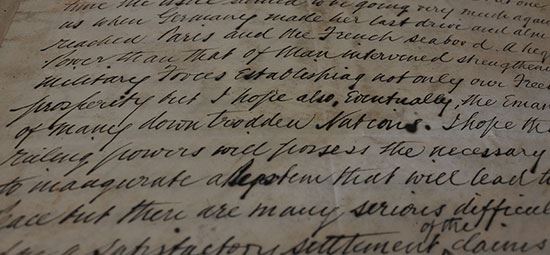 time the issue seemed to be going very much again
us when Germany made her last drive and alm
reached Paris and the French seaboard. A hig
Power than that of Man intervened strengthene
Military Forces Establishing not only our Free
prosperity but I hope also, Eventually, the Eman
of many down trodden Nations. I hope th
ruling powers will possess the necessary
to inaugurate a system that will lead t
eace but there are many serious difficul
of the
for a satisfactory settlement claims